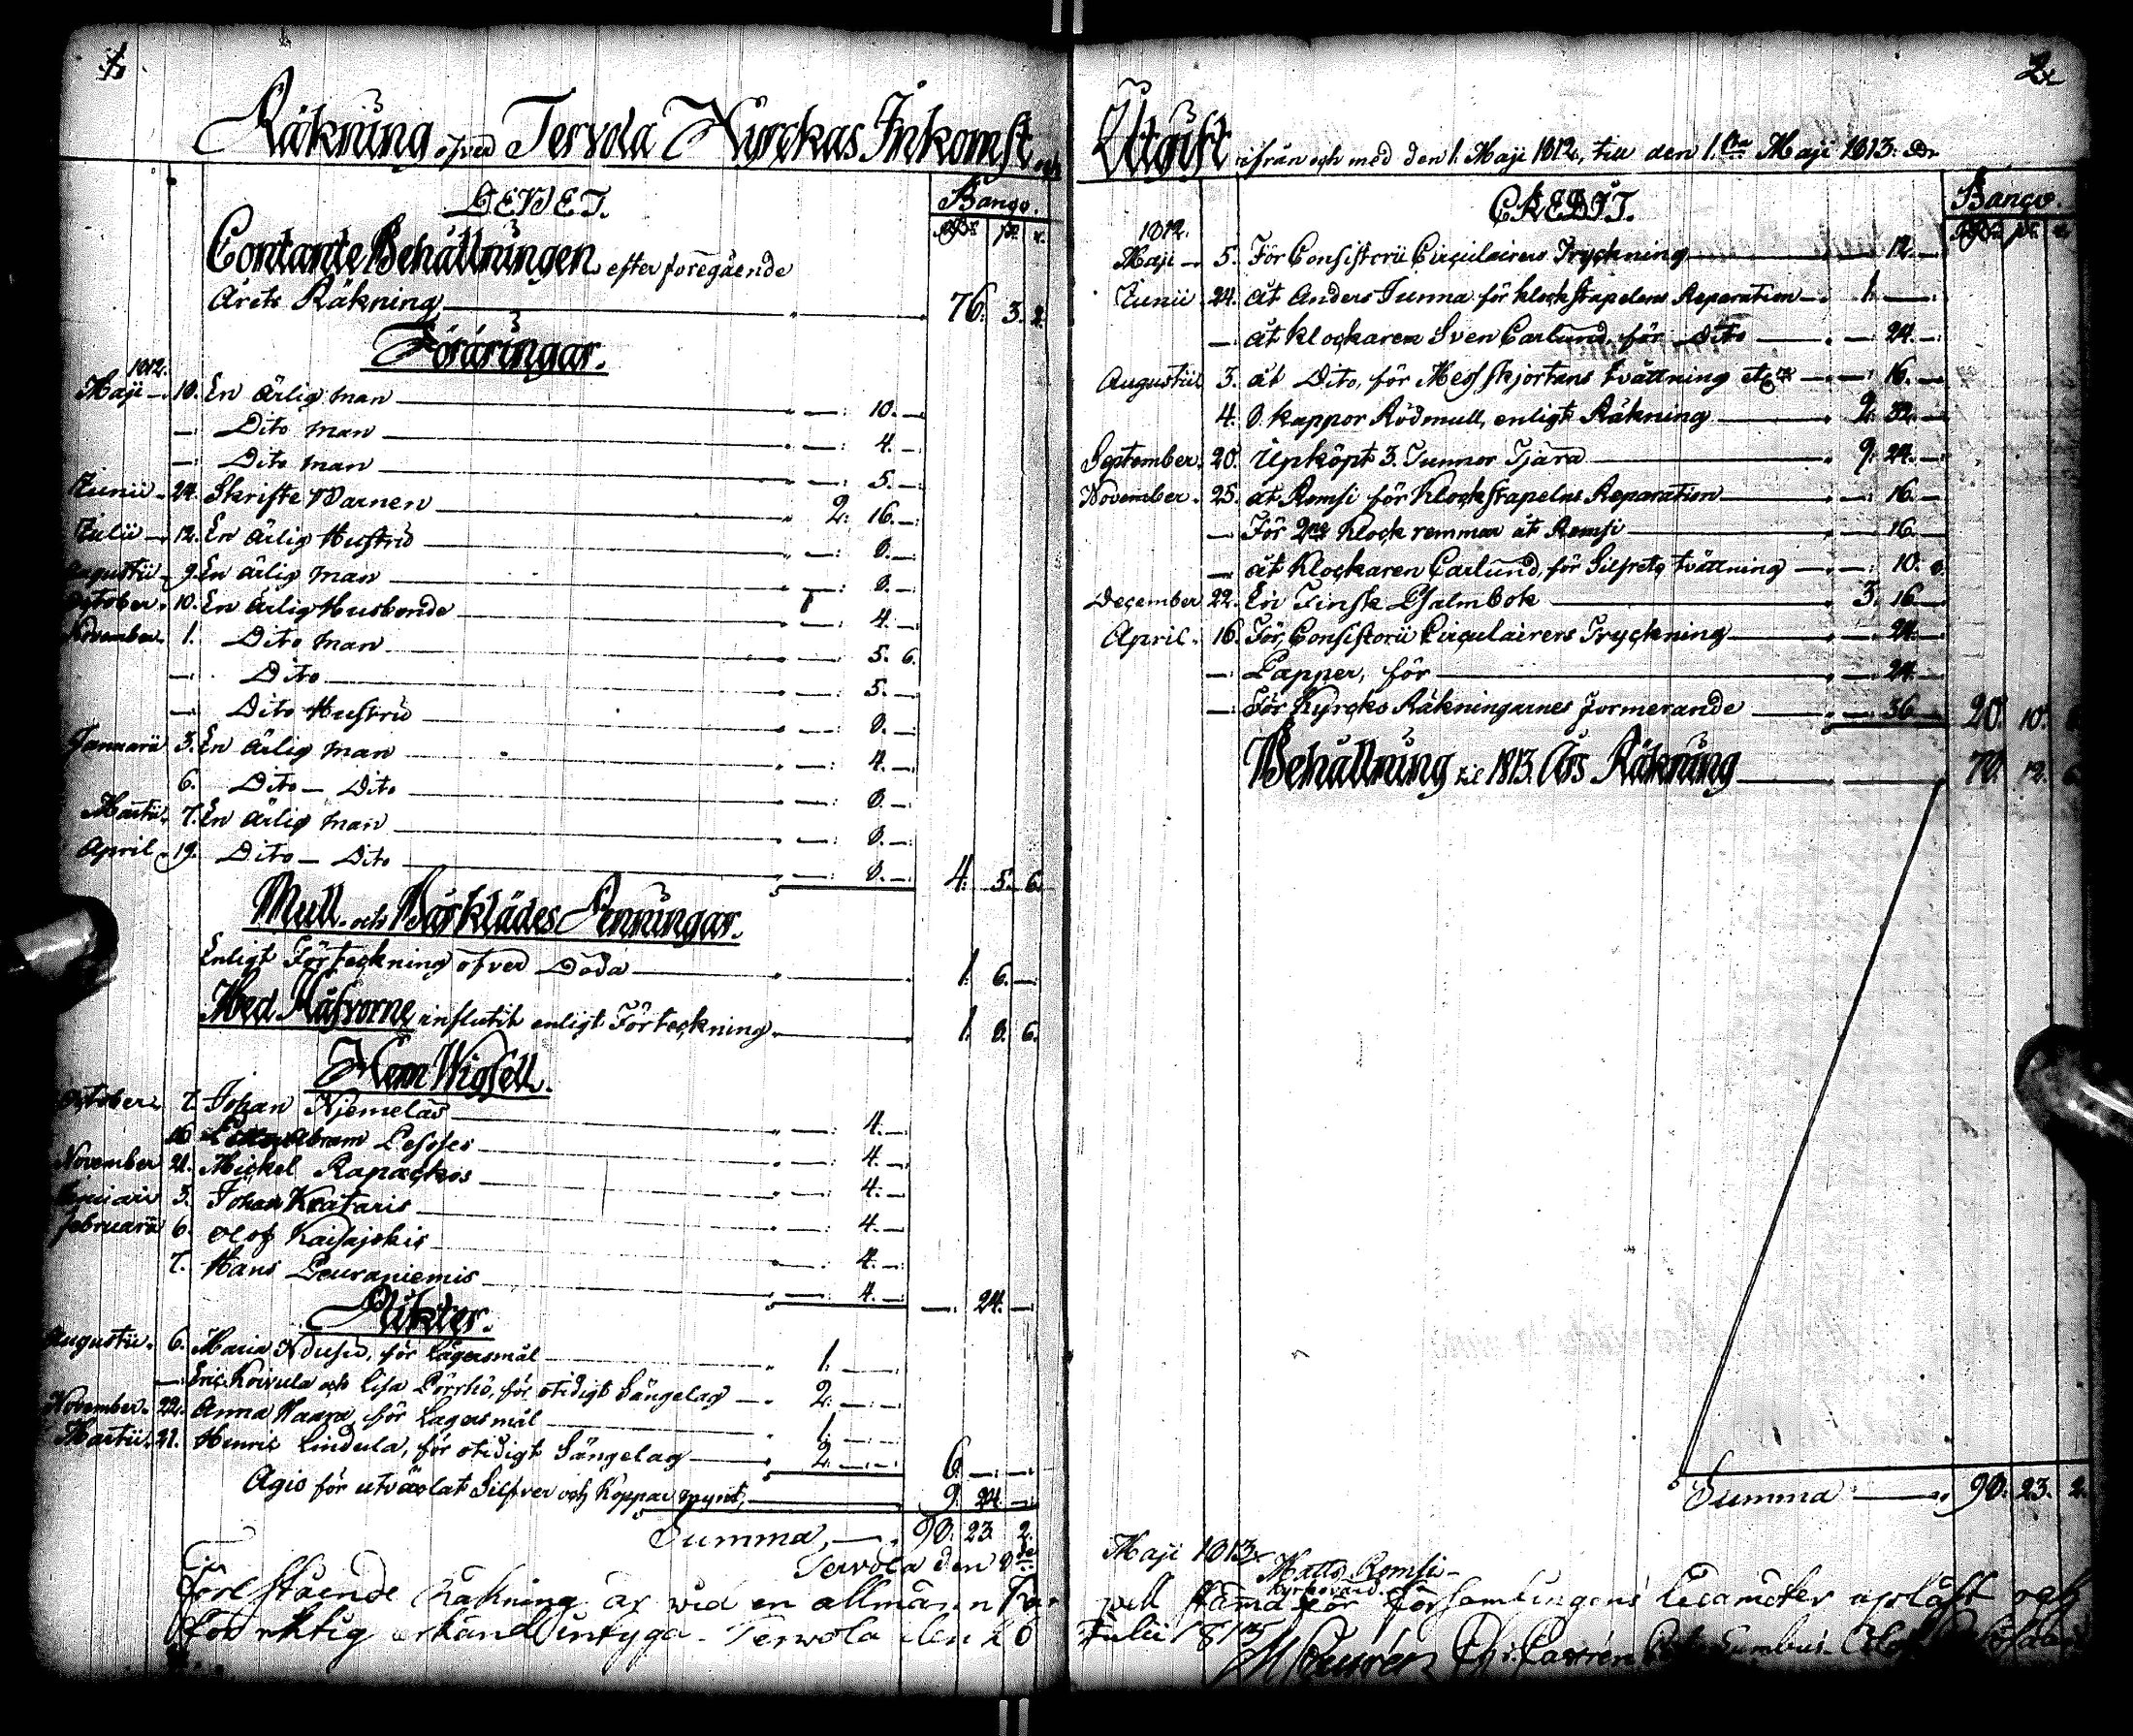 1.
Räkning öfver Tervola Kyrckas Inkomst och
DEBET.
Banco.
Rdr. sk. r.
Contante Behållningen efter föregående
Årets Räkning 76. 3. 2.
Föräringar.
1812.
Maji 10. En ärlig man 10.
Dito man 4.
Dito man 5.
Junii 24. Skrifte Barnen 2. 16.
Julii 12. En ärlig Hustru 8.
Augustii 9. En ärlig man 8.
October 10. En ärlig Husbonde 4.
November 1. Dito man 5. 6.
Dito 5.
Dito Hustru 8.
Januarii 3. En ärlig man 4.
6. Dito Dito 8.
Martii 7. En ärlig man 8.
April 19. Dito Dito 8. 4. 5. 6.
Mull och Bårklädes Penningar.
Enligt Förteckning öfver Döda 1. 6.
Med Håfvorne influtit enligt Förteckning 1. 8. 6.
Hem Wigsell.
October 7. Johan Kjemeläs 4.
16 Abram Lessses 4.
November 21. Mickel Rapackos 4.
3. Johan Krataris 4.
Februarii 6. Olof Kaisajokis 4.
7. Hans Louraniemis 4. 24.
Plikter.
Augustii 6. Maria, för Lägersmål 1.
Eric Koivula och Lisa Pörrhö, för otidigt Sängelag 2.
November 22. Anna Vaara, för Lägersmål 1.
Martii 21. Henric Lindula, för otidigt Sängelag 2. 6.
Agio för utväxlat Silfver och Koppar mynt, 9. 24.
Summa, 98. 23. 2.
Tervola den 8de
Förestående Räkning är wid en allmän
för riktig erkänd intyga. Tervola den 26
2.
Utgift ifrån och med den 1. Maji 1812, till den 1.sta Maji 1813.
CREDIT.
Banco.
Rdr. sk. r.
1812.
Maji 5. För Consistorii Circulairers Tryckning 12.
Junii 24. åt Anders Junna för klockstapelens Reparation 1.
åt klockaren Sven Carlund, för Dito 24.
Augustii 3. åt Dito, för Messskjortans tvättning etc. 16.
4. 8. kappor Rödmull, enligt Räkning 2. 32.
September 20. Upköpt 3. Tunnor Tjära 9. 24.
November 25. åt Remsi för klockstapelns Reparation 16.
För 2ne klock remmar åt Remsi 16.
åt klockaren Carlund, för Silfrets tvättning 10. 8.
December 22. En Finsk Psalmbok 3. 16.
April 16. För Consistorii Circulairers Tryckning 24.
Papper, för 24.
För Kyrcko Räkningarnes formerande 36. 20. 10. 8.
Behållning til 1813. Års Räkning 78. 12. 6.
Summa 98. 23. 2.
Maji 1813.
Matts Remsi
kyrkovärd.
stämma för Församlingens Ledamöter upläst och
Julii 1815